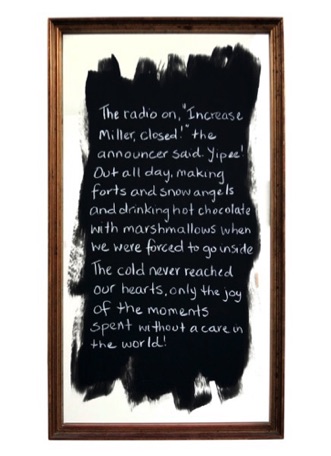 The radio on, "Increase
Miller, closed!" the
announcer said. Yipee!
Out all day, making
forts and snow angels
and drinking hot chocolate
with marshmallows when
we were forced to go inside
The cold never reached
our hearts, only the joy
of the moments
spent without a care in
the world!